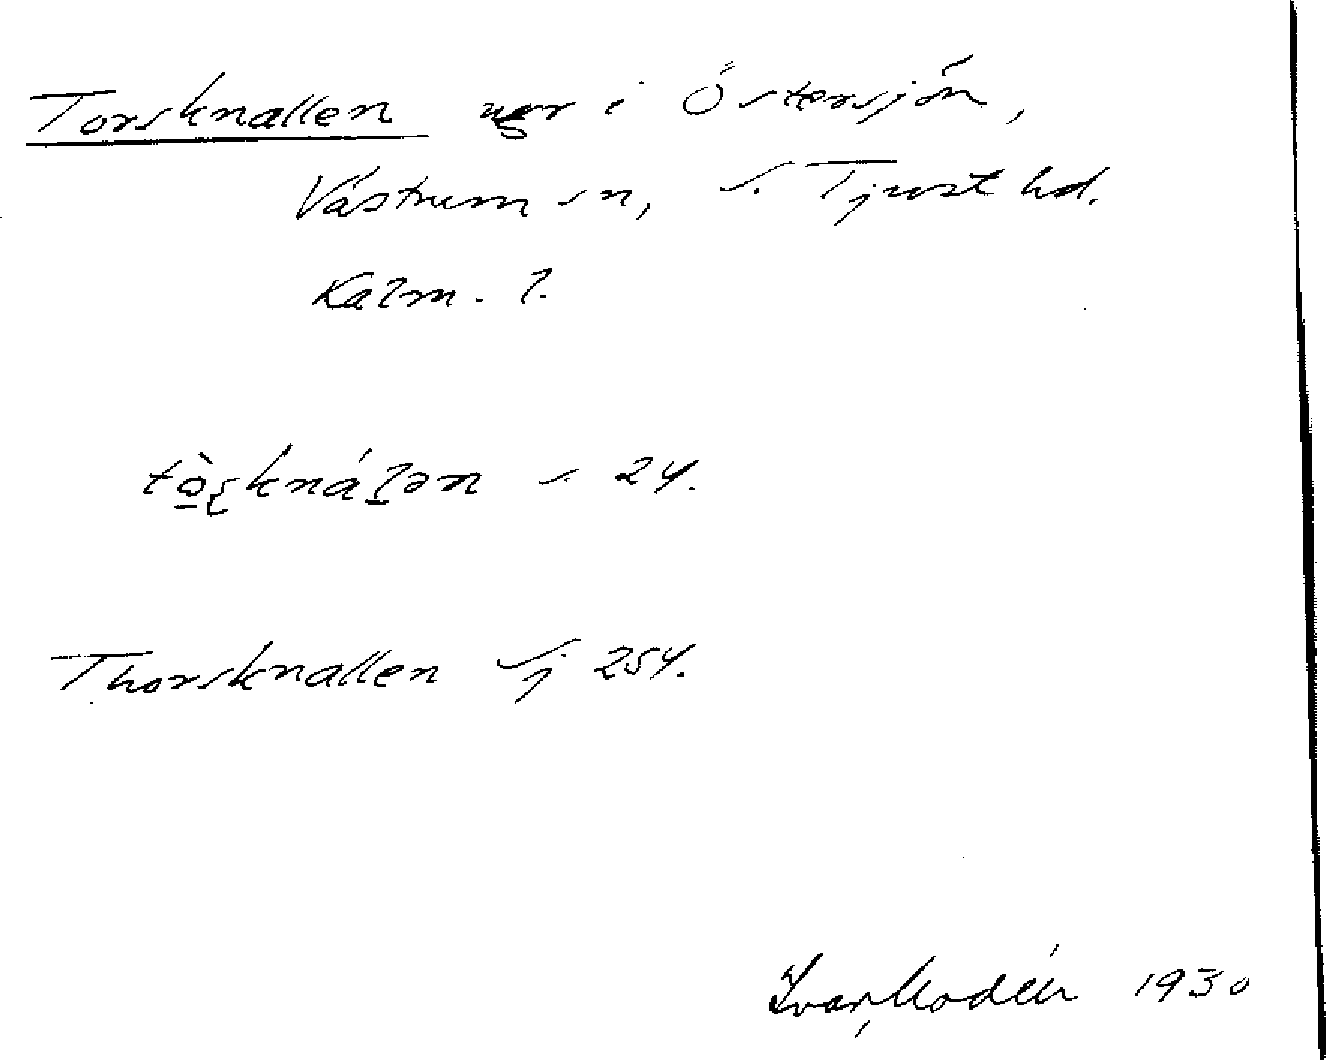 Torsknallen i Östersjön,
Västrum sn, S. Tjust hd.
Kalm. l.
24.
Thorsknallen Sj 254.
Ivar Modéer 1930